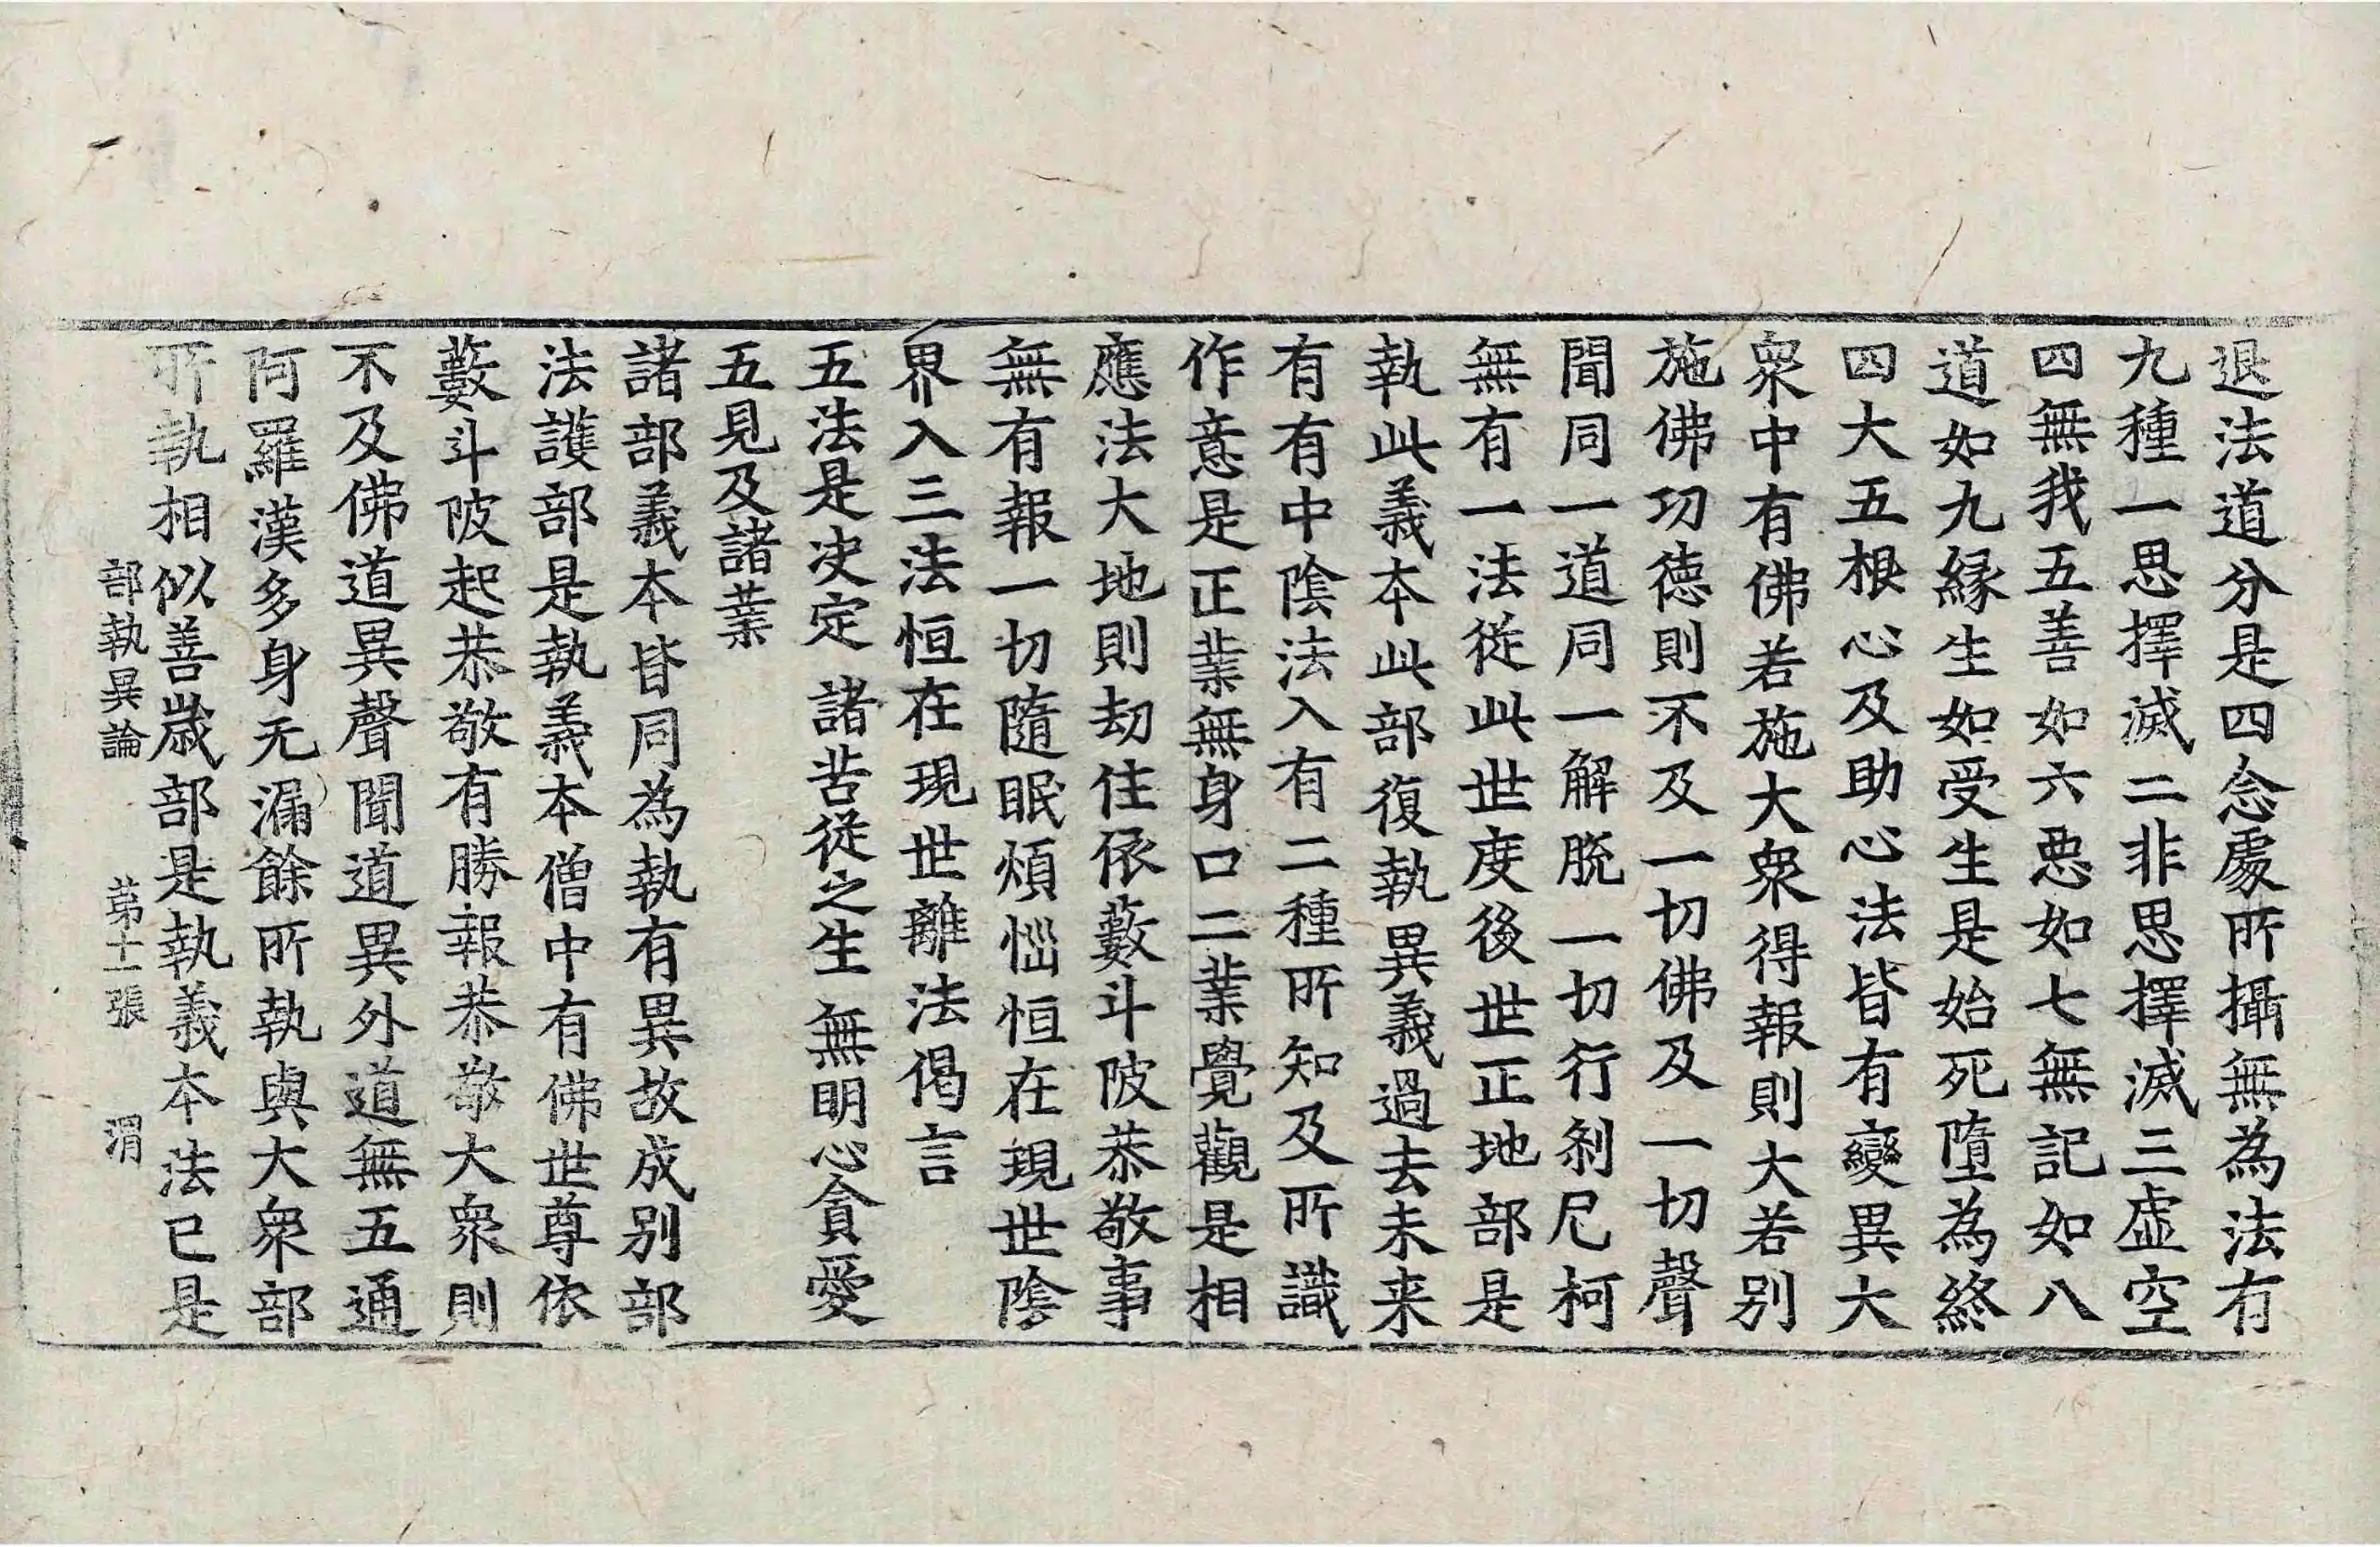 退法道分是四念處所攝無為法有
九種一思擇滅二非思擇滅三虛空
四無我五善如六惡如七無記如八
道如九縁生如受生是始死墮為終
四大五根心及助心法皆有變異大
衆中有佛若施大衆得報則大若別
施佛功徳則不及一切佛及一切聲
聞同一道同一解脫一切行剎尼柯
無有一法從此世度後世正地部是
執此義本此部復執異義過去未来
有有中陰法入有二種所知及所識
作意是正業無身口二業覺觀是相
應法大地則劫住依藪斗陂恭敬事
無有報一切隨眠煩惱恒在現世陰
界入三法恒在現世離法偈言
五法是决定 諸苦從之生 無明心貪愛
五見及諸業
諸部義本皆同為執有異故成別部
法護部是執義本僧中有佛世尊依
藪斗陂起恭敬有勝報恭敬大衆則
不及佛道異聲聞道異外道無五通
阿羅漢多身无漏餘所執與大衆部
所執相似善歲部是執義本法已是
部執異論 苐十一張 渭